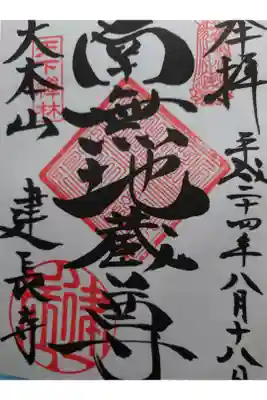 奉拝
平成二十四年八月十八日
南無地蔵尊
大本山
建長寺